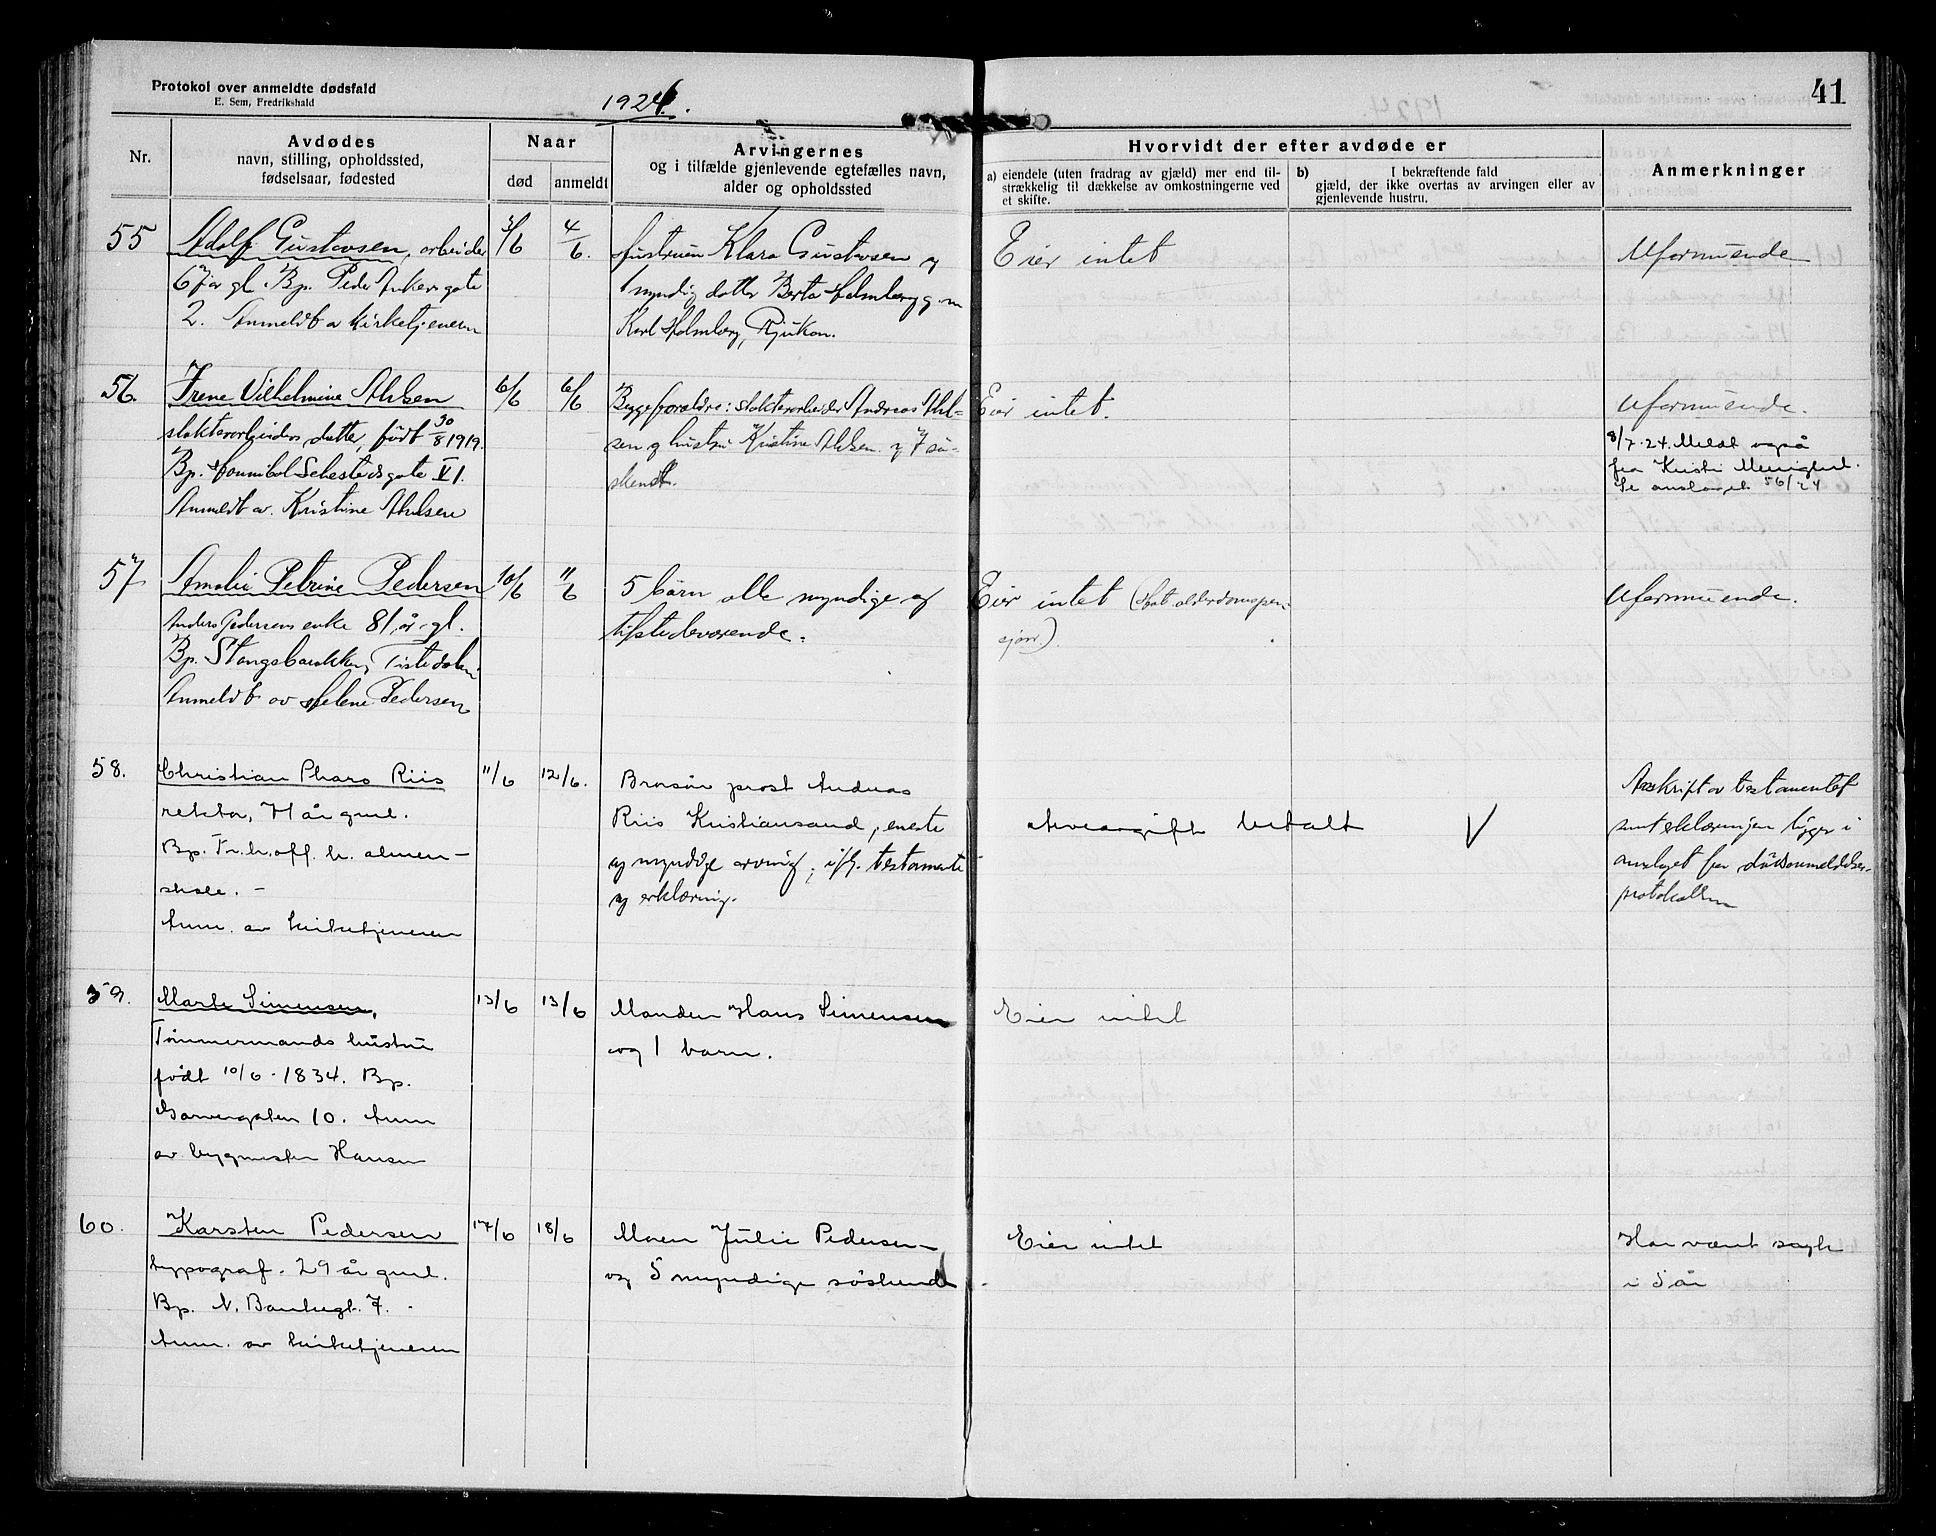 Protokol over anmeldte dødsfald
E. Sem, Fredrikshald
1924.
41
Nr.
Avdødes
navn, stilling, opholdssted,
fødselsaar, fødested
Naar
død
anmeldt
Arvingernes
og i tilfælde gjenlevende egtefælles navn,
alder og opholdssted
Hvorvidt der efter avdøde er
a) eiendele (uten fradrag av gjæld) mer end til-
strækkelig til dækkelse av omkostningerne ved
et skifte.
b) I bekræftende fald
gjæld, der ikke overtas av arvingen eller av
gjenlevende hustru.
Anmerkninger
55
Adolf Gustavsen, arbeider
67 år gl. Bp. Peder Ankers gate
2. Anmeldt av kirketjeneren
3/6
4/6.
Hustruen Klara Gustavsen og
1 myndig datter Berta Holmberg g. m
Karl Holmberg, Rjukan.
Eier intet
Uformuende
56.
Irene Vilhelmine Ahlsen
slakteriarbeiders datter, født 30/8 1919.
Bp. Hannibal Sehesteds gate VI.
Anmeldt av Kristine Ahlsen
6/6
6/6
Begge foreldre: slakteriarbeider Andreas Ahl-
sen og hustru Kristine Ahlsen og 7 sø-
sken.
Eier intet.
Uformuende.
8/7-24. Meldt også
fra Kristi Menighet.
Se omslaget 56/24
57
Amalie Petrine Pedersen
Anders Pedersens enke 81 år gl.
Bp. Stangebrakken, Tistedalen
Anmeldt av Helene Pedersen
10/6
11/6
5 børn alle myndige og
tilstedeværende.
Eier intet (hat alderdomspen-
sjon).
Uformuende.
58.
Christian Pharo Riis
rektor, 71 år gml.
Bp. Fr.h. off. h. almen-
skole. -
Anm. av kirketjeneren
11/6
12/6.
Brorsøn prost Andreas
Riis Kristiansand, eneste
og myndige arving, iflg. testamente
og erklæring.
Arveavgift betalt
V
Avskrift av testamentet
samt erklæringen ligger i
omslaget for dødsanmeldelses-
protokollen
59.
Marte Simensen,
Tømmermands hustru
født 10/6-1834. Bp.
Garvergaten 10. Anm
av bygmester Hansen
13/6
13/6
Manden Hans Simensen
og 1 barn.
Eier intet
60.
Karsten Pedersen
typograf. 29 år gml.
Bp. N. Bankegt. 7. -
Anm. av kirketjeneren
17/6
18/6
Moren Julie Pedersen
og 5 myndige søskende
Eier intet
Har været syk
i 5 år